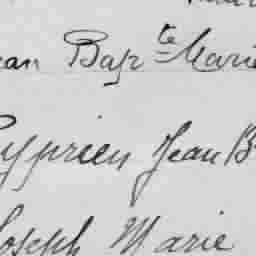 ean Bapte Marie
Cyprien Jean B
Joseph Marie